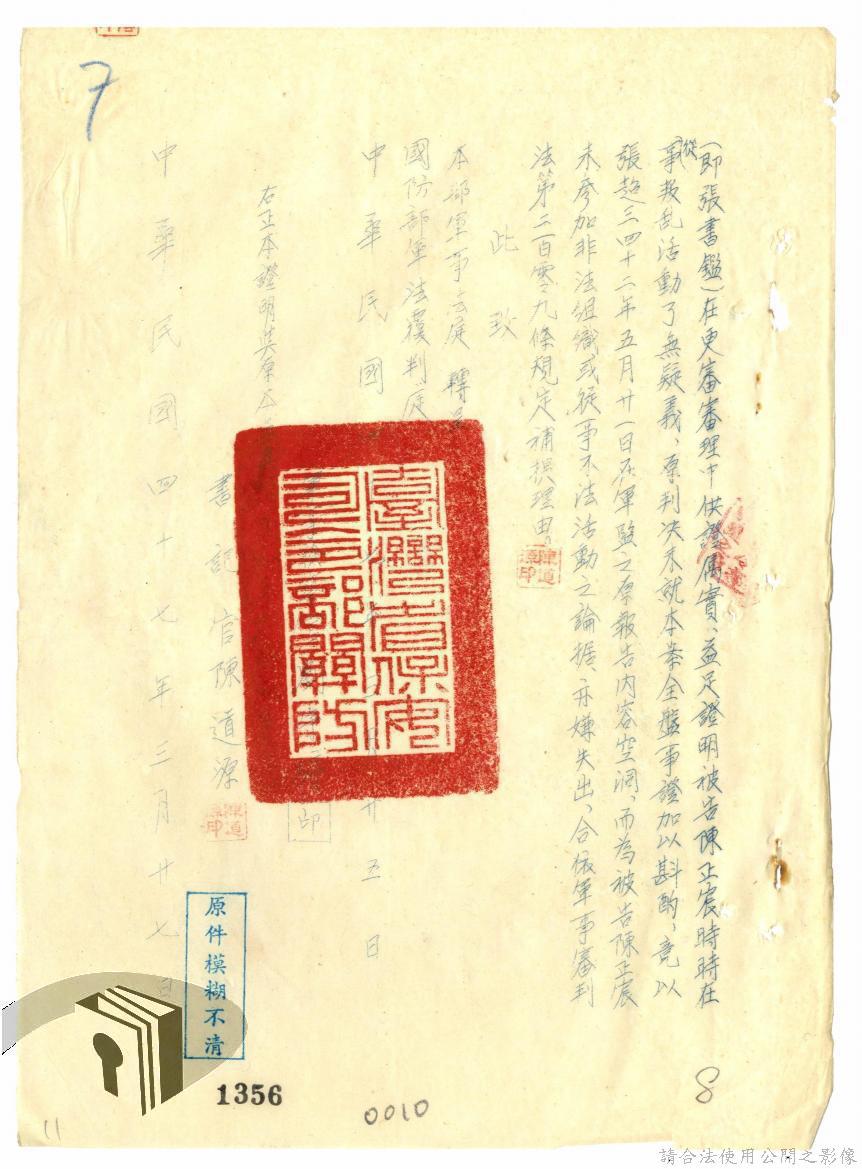 (即張書鑑)在更審審理中供證屬實、益足證明被告陳正宸時時在
從事叛乱活動了無疑義、原判決未就本案全盤事證加以斟酌、竟以
張趙三四十二年五月廿一日在軍監之原報告內容空洞、而為被告陳正宸
未參加非法組織或從事不法活動之論据、亦嫌失出、合依軍事審判
法第二百零九條規定補提理由。
陳道源印
此致
本部軍事法庭 轉呈
國防部軍法覆判庭
中華民國 廿五日
印
臺灣省保安司令部關防
右正本證明與原本
書記官陳道源
陳道源印
中華民國四十七年三月廿七日
原件模糊不清
7
8
1356
0010
11
請合法使用公開之影像